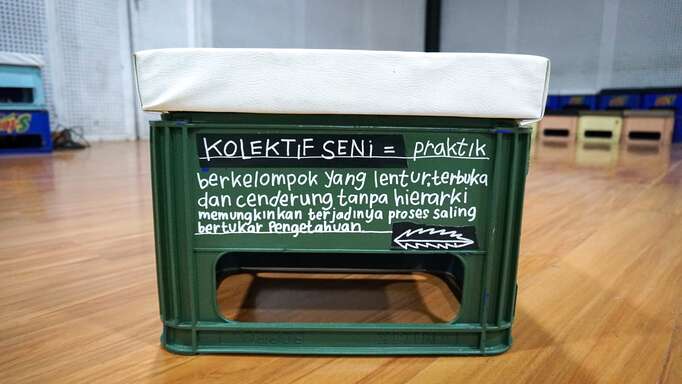 KOLEKTIF SENI = praktik
berkelompok yang lentur, terbuka
dan cenderung tanpa hierarki
memungkinkan terjadinya proses saling
bertukar Pengetahuan.